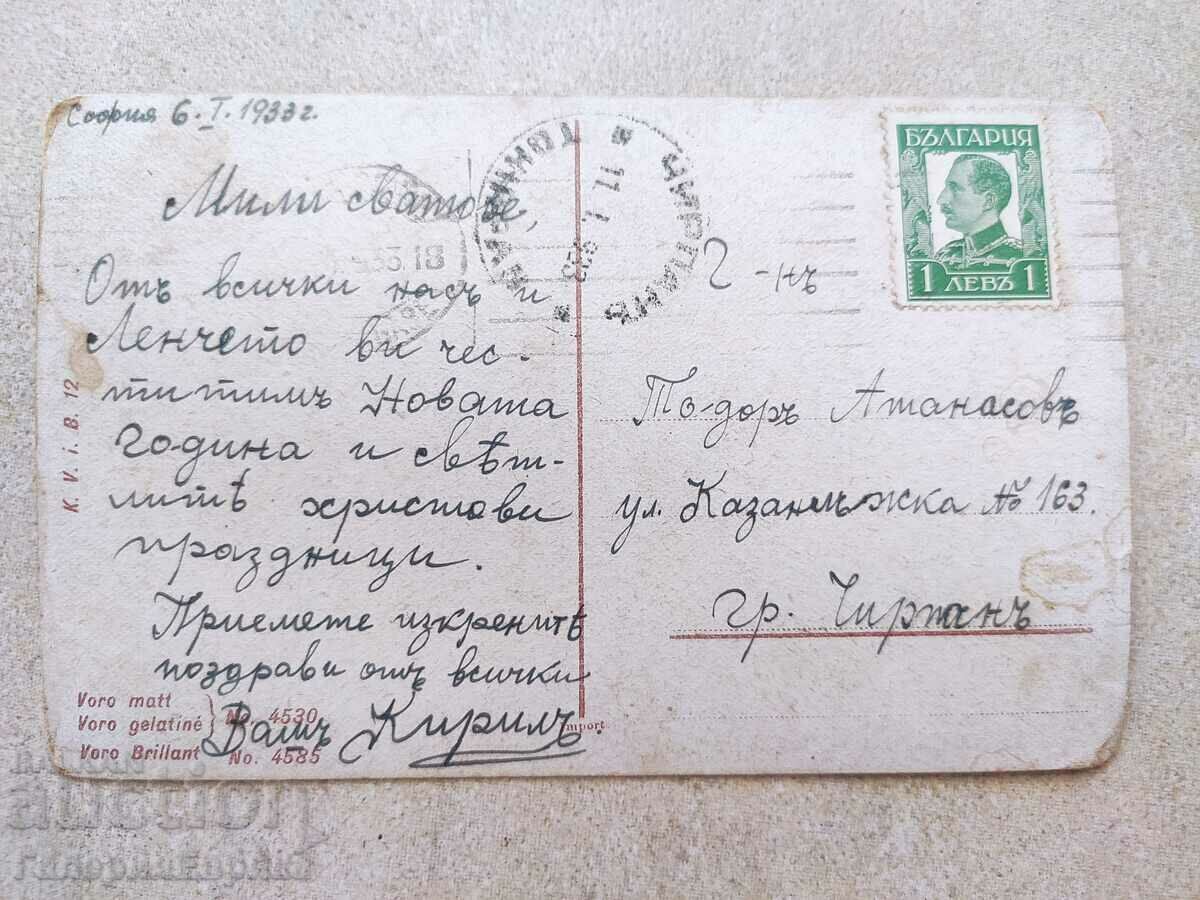 София 6.I.1933г.
Мили сватове,
Отъ всички насъ и
Ленчето ви чес-
титимъ Новата
година и свѣт-
литѣ христови
праздници.
Приемете искренитѣ
поздрави отъ всички
Вашъ Кирилъ
K. V. i. B. 12
Voro matt
Voro gelatiné
No. 4530
Voro Brillant No. 4585
Import
ЧИРПАНЪ
11. I.
33.18
БЪЛГАРИЯ
1 ЛЕВЪ 1
Г-нъ
Тодоръ Атанасовъ
ул. Казанлъжка № 163.
гр. Чирпанъ
auction